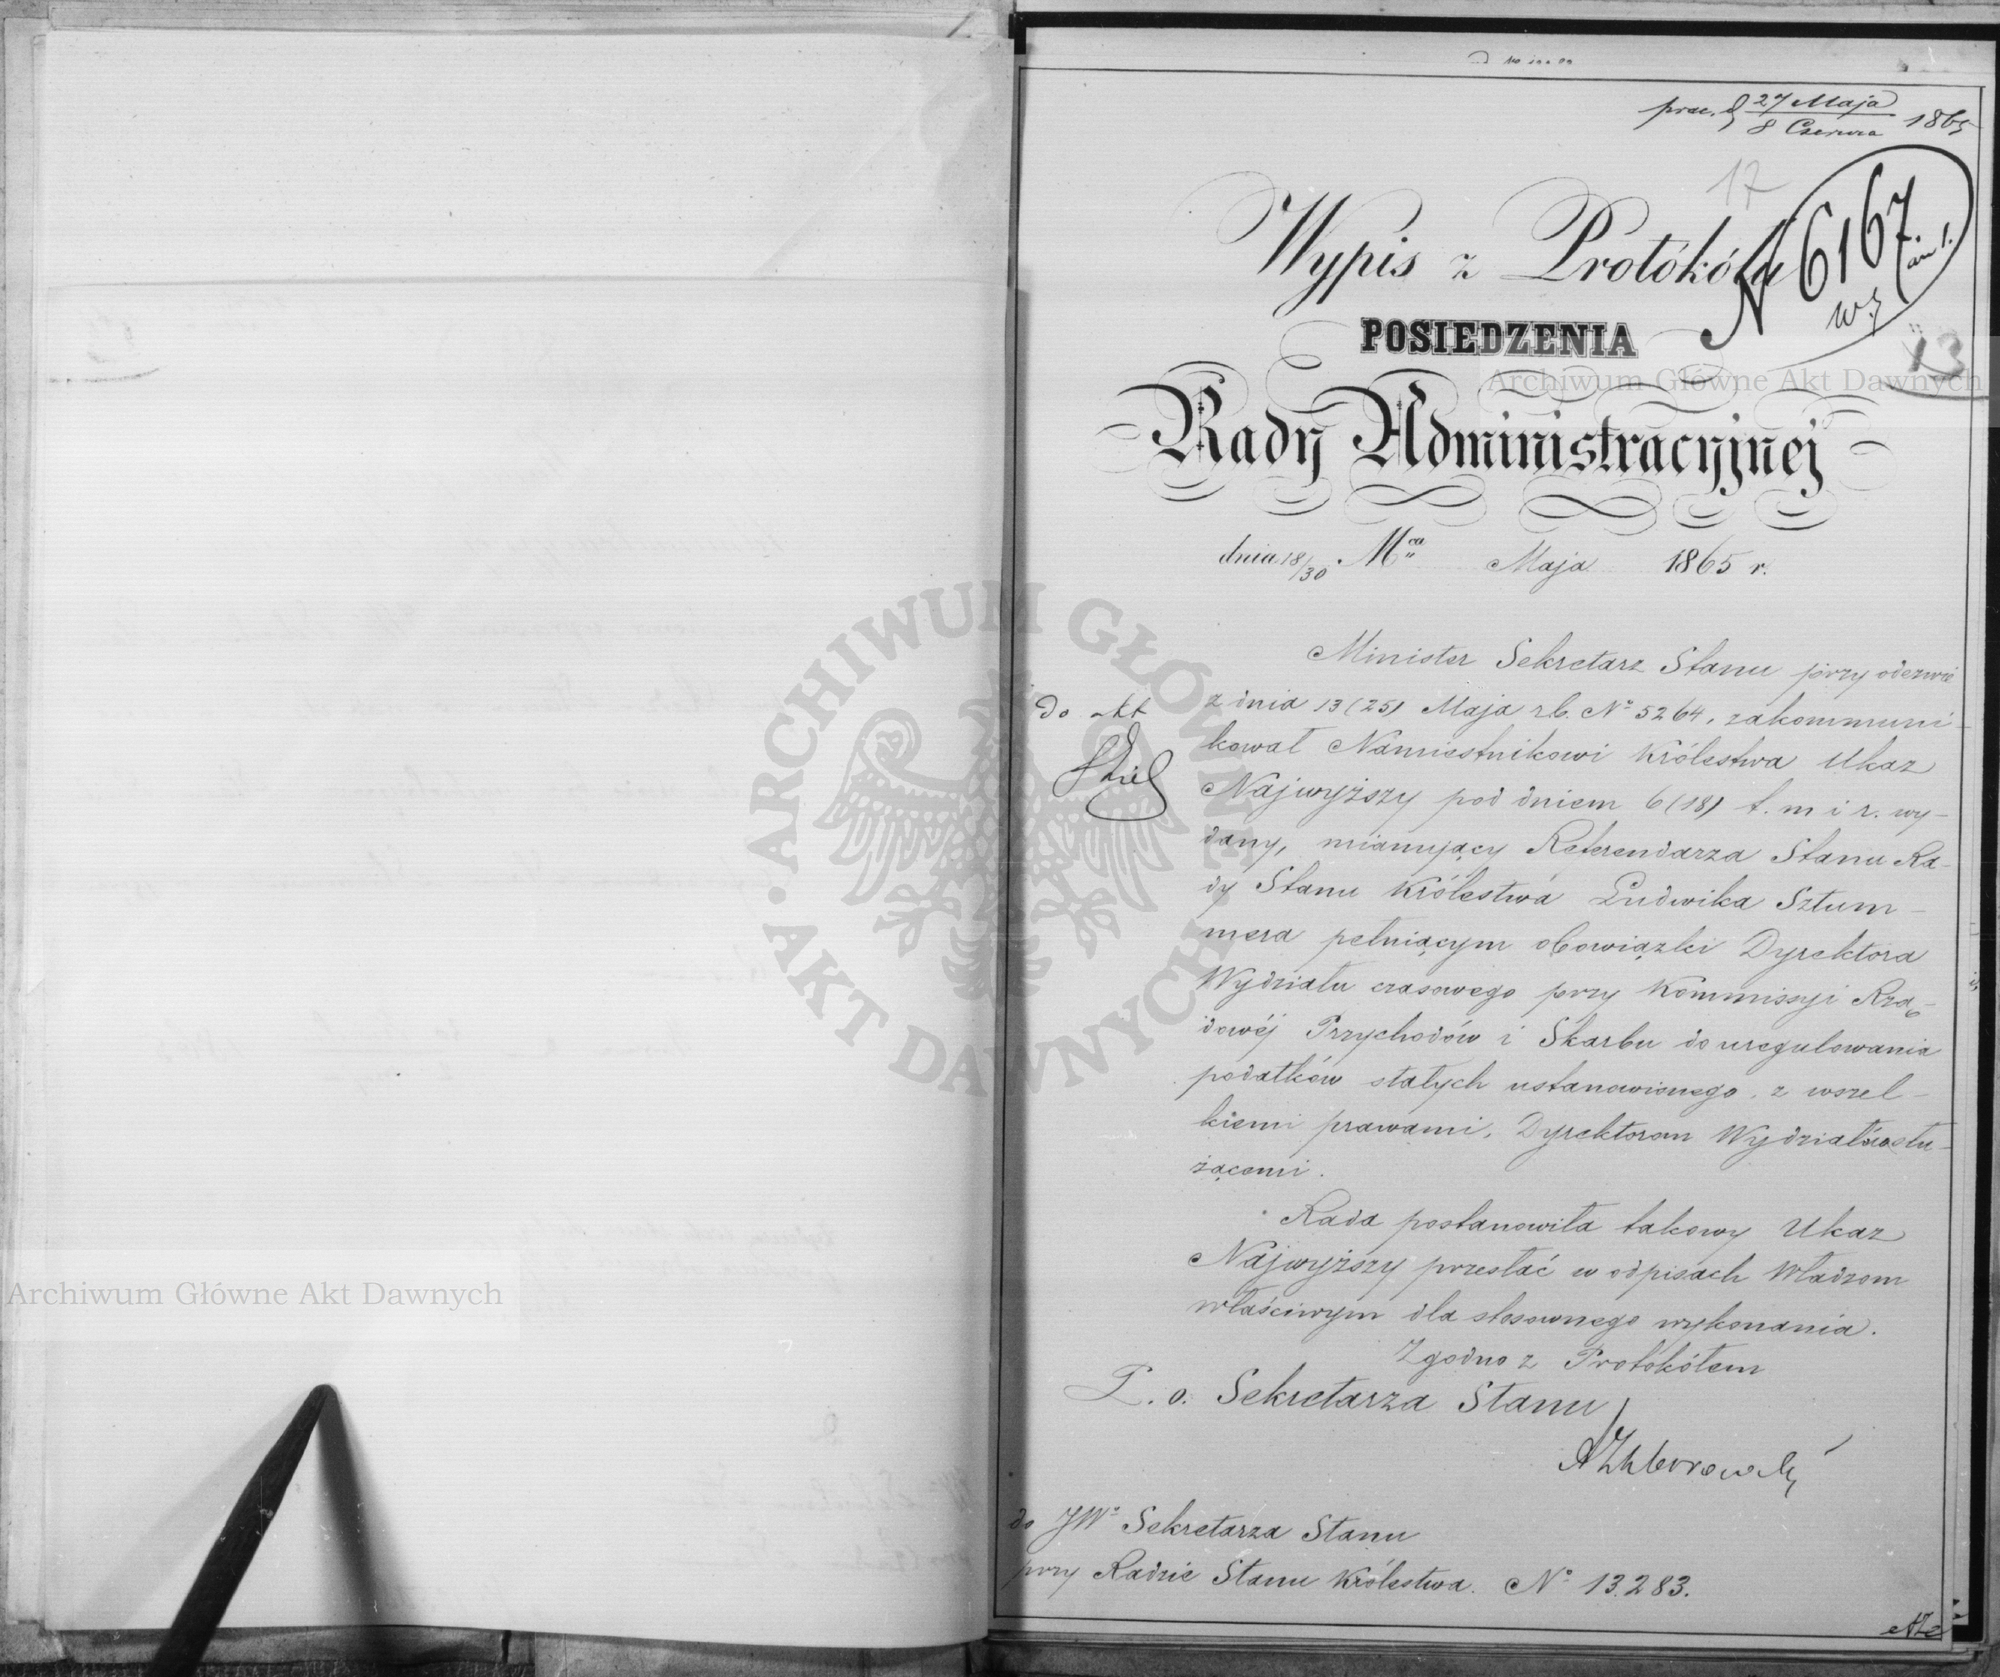 27 Maja
8 Czerwca 1865
17
N 6167
13
Wypis z Protokółu
POSIEDZENIA
Rady Administracyjnej
dnia 18/30 Mca Maja 1865 r.
Minister Sekretarz Stanu przy odezwie
do akt
z dnia 13 (25) Maja rb. No 5264, zakommuni-
kował Namiestnikowi Królestwa Ukaz
Najwyższy pod dniem 6 (18) t. m i r. wy-
dany, mianujący Referendarza Stanu Ra-
dy Stanu Królestwa Ludwika Sztum-
mera pełniącym obowiązki Dyrektora
Wydziału czasowego przy Kommissyi Rzą-
dowéj Przychodów i Skarbu do uregulowania
podatków stałych ustanowionego, z wszel-
kiemi prawami, Dyrektorom Wydziałów słu-
żącemi.
Rada postanowiła takowy Ukaz
Najwyższy przesłać w odpisach Władzom
właściwym dla stosownego wykonania.
Zgodno z Protokółem
P. o. Sekretarza Stanu
do JWo Sekretarza Stanu
przy Radzie Stanu Królestwa. No 13.283.
Archiwum Główne Akt Dawnych
Archiwum Główne Akt Dawnych
ARCHIWUM GŁÓWNE AKT DAWNYCH